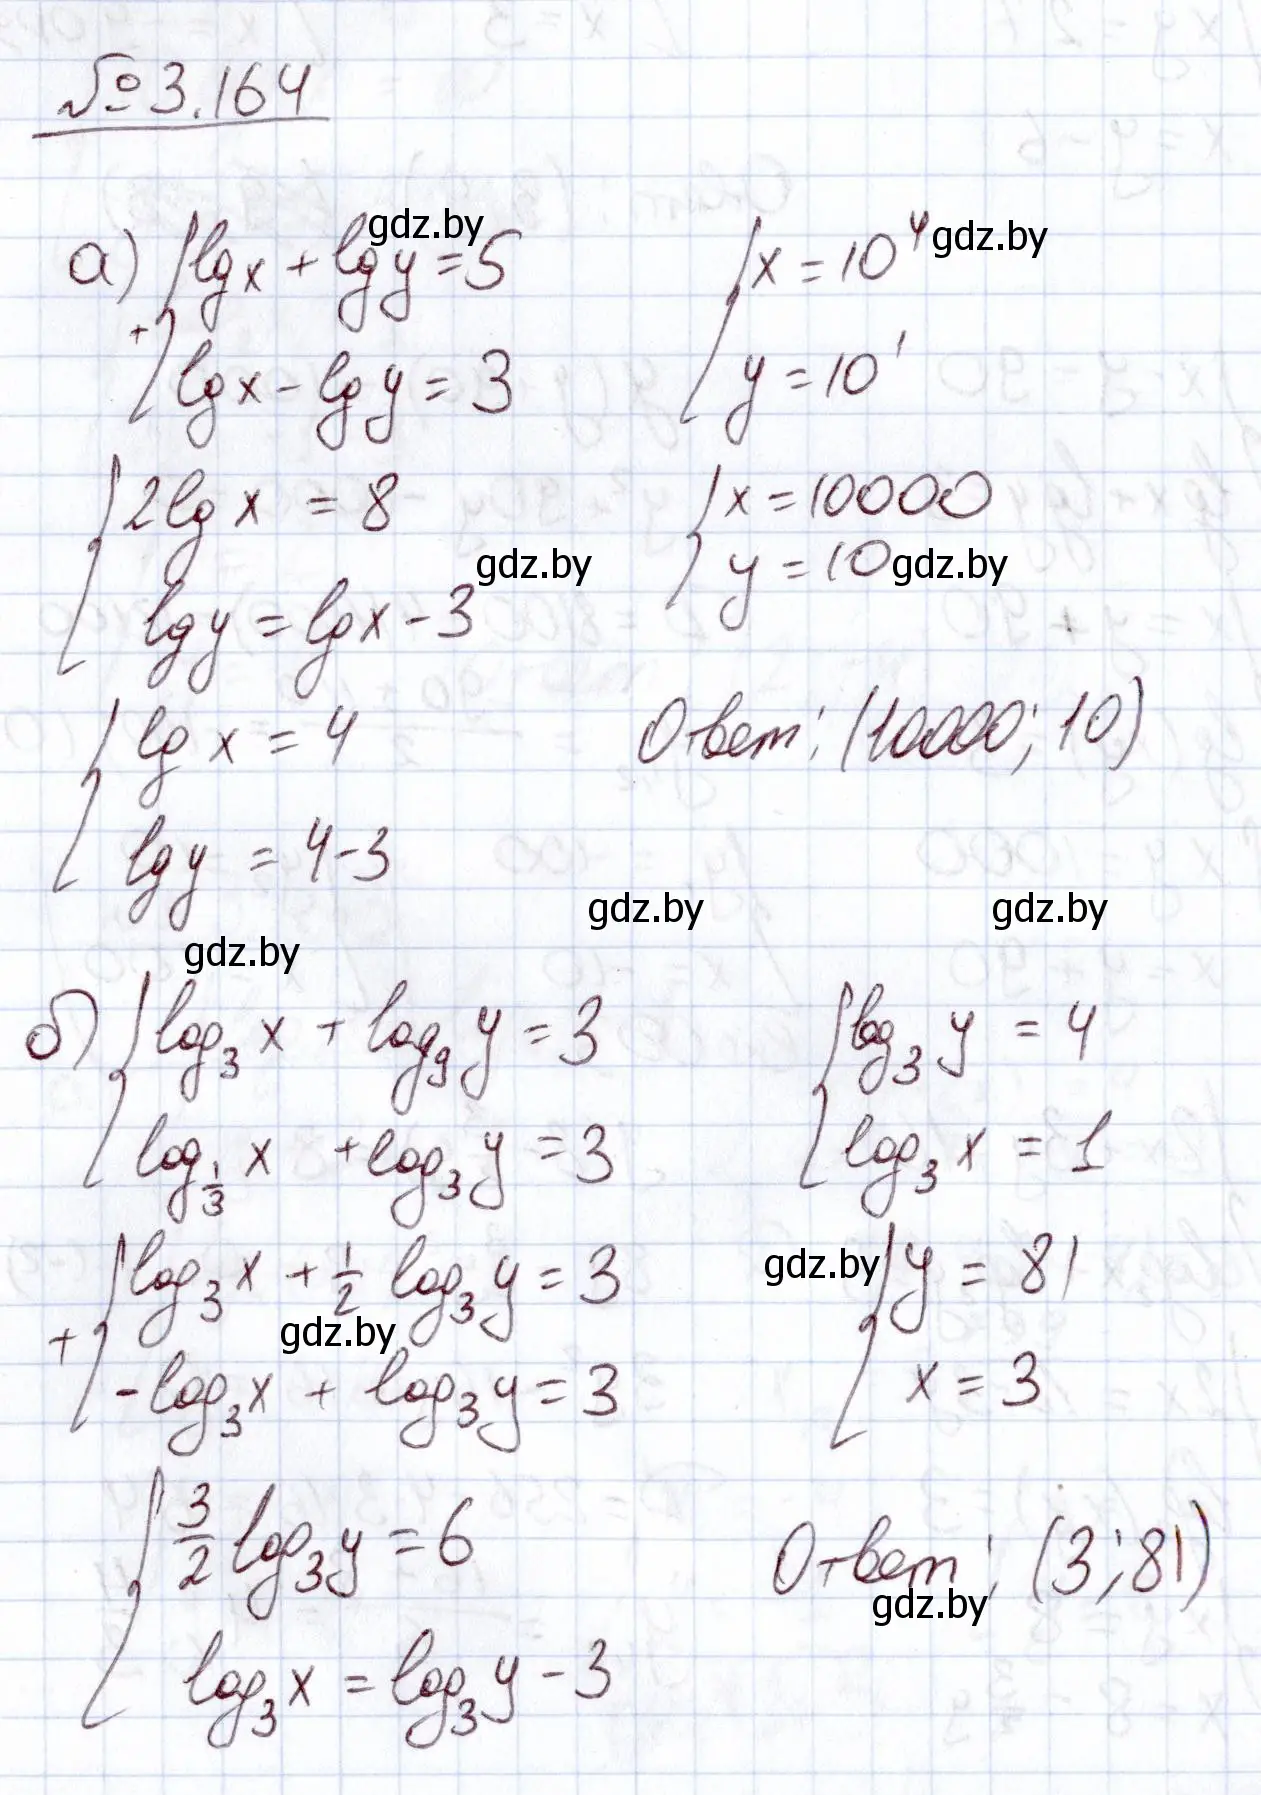 №3.164
а) { lgx + lgy = 5
+ lgx - lgy = 3
{ 2lg x = 8
lgy = lgx - 3
{ lg x = 4
lgy = 4-3
{ x = 10⁴
y = 10¹
{ x = 10000
y = 10
Ответ: (10000; 10)
б) { log₃ x + log₉ y = 3
log_{1/3} x + log₃ y = 3
{ log₃ x + 1/2 log₃ y = 3
+ -log₃ x + log₃ y = 3
{ 3/2 log₃ y = 6
log₃ x = log₃ y - 3
{ log₃ y = 4
log₃ x = 1
{ y = 81
x = 3
Ответ: (3; 81)
gdz.by
gdz.by
gdz.by
gdz.by
gdz.by
gdz.by
gdz.by
gdz.by
gdz.by
gdz.by